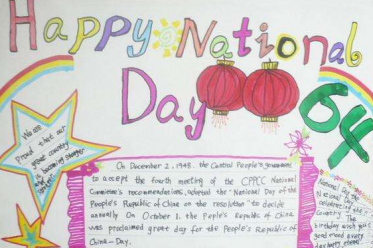 Happy National
Day
64
We are
Proud that our
great country
is becoming stronger
On December 2, 1948, the Central People's government
to accept the fourth meeting of the CPPCC National
Committee's recommendations, adopted the "National Day of the
People's Republic of China on the resolution" to decide
annually On October 1, the Peple's Republic of China
was proclaimed great day for the People's Republic of
China-Day.
National Day the
National Day
country. The
birthday wish you
good mood every